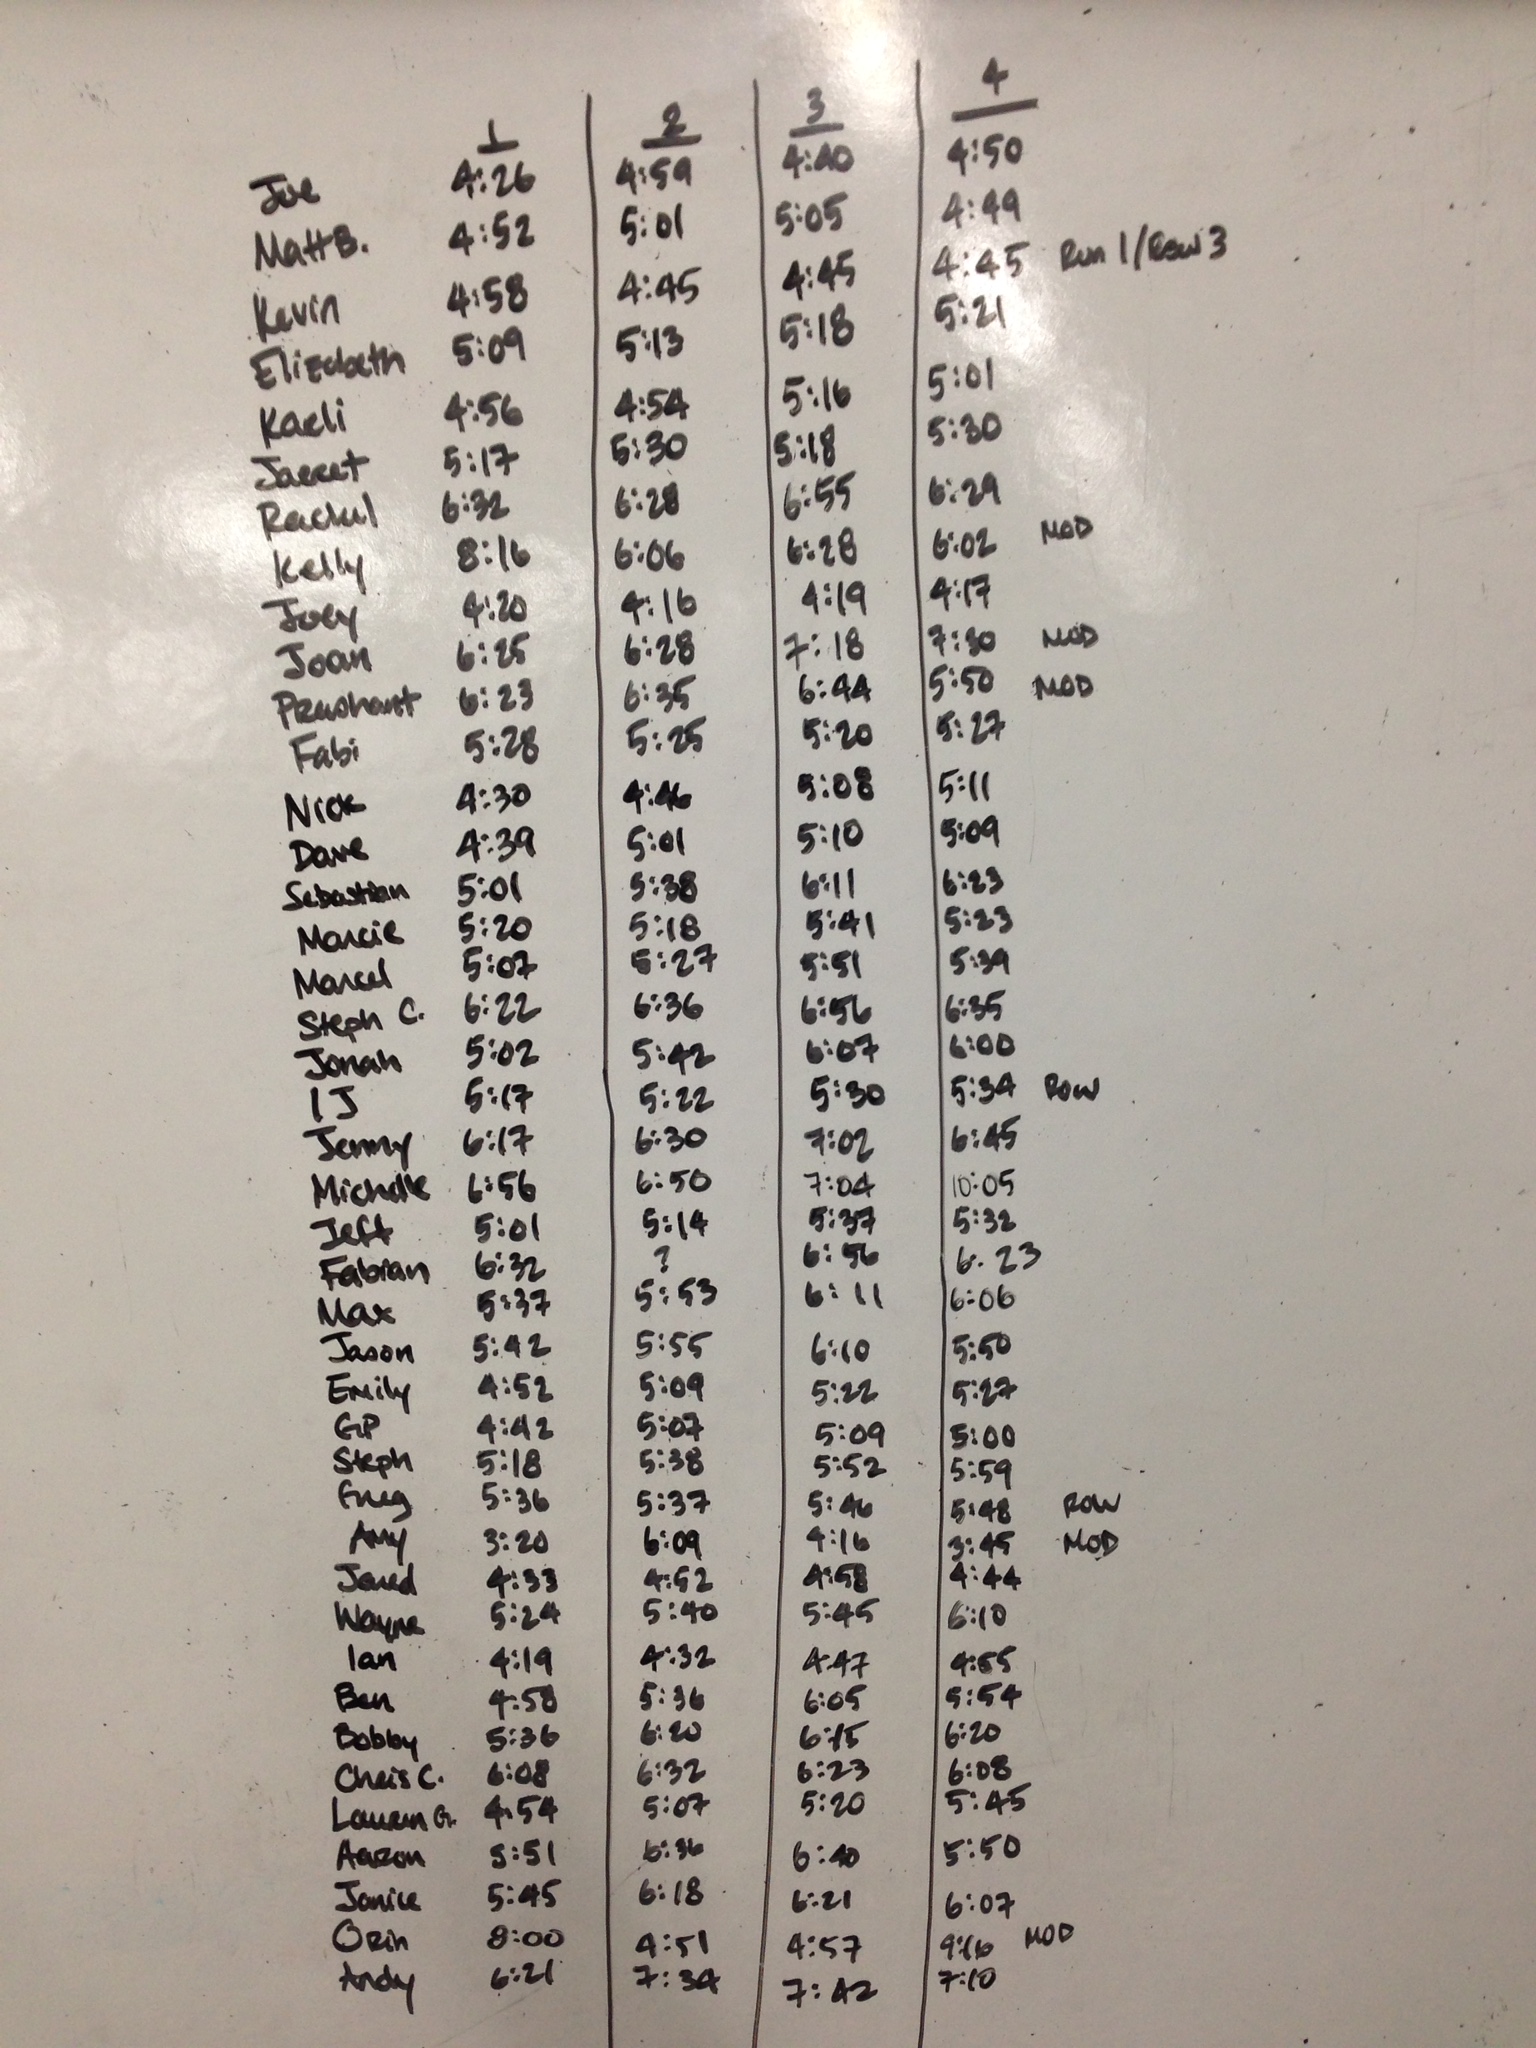 1 2 3 4
Joe 4:26 4:59 4:40 4:50
Matt B. 4:52 5:01 5:05 4:49
Kevin 4:58 4:45 4:45 4:45 Run 1/Row 3
Elizabeth 5:09 5:13 5:18 5:21
Kaeli 4:56 4:54 5:16 5:01
Jarret 5:17 5:30 5:18 5:30
Rachel 6:32 6:28 6:55 6:29
Kelly 8:16 6:06 6:28 6:02 MOD
Joey 4:20 4:16 4:19 4:17
Joan 6:25 6:28 7:18 7:30 MOD
Prashant 6:23 6:35 6:44 5:50 MOD
Fabi 5:28 5:25 5:20 5:27
Nick 4:30 4:46 5:08 5:11
Dave 4:39 5:01 5:10 5:09
Sebastian 5:01 5:38 6:11 6:23
Marcie 5:20 5:18 5:41 5:23
Marcel 5:07 5:27 5:51 5:39
Steph C. 6:22 6:36 6:56 6:35
Jonah 5:02 5:42 6:07 6:00
IJ 5:17 5:22 5:30 5:34 ROW
Jenny 6:17 6:30 7:02 6:45
Michelle 6:56 6:50 7:04 10:05
Jeff 5:01 5:14 5:37 5:32
Fabian 6:32 ? 6:56 6.23
Max 5:37 5:53 6:11 6:06
Jason 5:42 5:55 6:10 5:50
Emily 4:52 5:09 5:22 5:27
GP 4:42 5:07 5:09 5:00
Steph 5:18 5:38 5:52 5:59
Greg 5:36 5:37 5:46 5:48 ROW
Amy 3:20 6:09 4:16 3:45 MOD
Jared 4:33 4:52 4:58 4:44
Wayne 5:24 5:40 5:45 6:10
Ian 4:19 4:32 4:47 4:55
Ben 4:58 5:36 6:05 5:54
Bobby 5:36 6:20 6:15 6:20
Chris C. 6:08 6:32 6:23 6:08
Lauren G. 4:54 5:07 5:20 5:45
Aaron 5:51 6:36 6:40 5:50
Janice 5:45 6:18 6:21 6:07
Orin 8:00 4:51 4:57 9:16 MOD
Andy 6:21 7:34 7:42 7:10